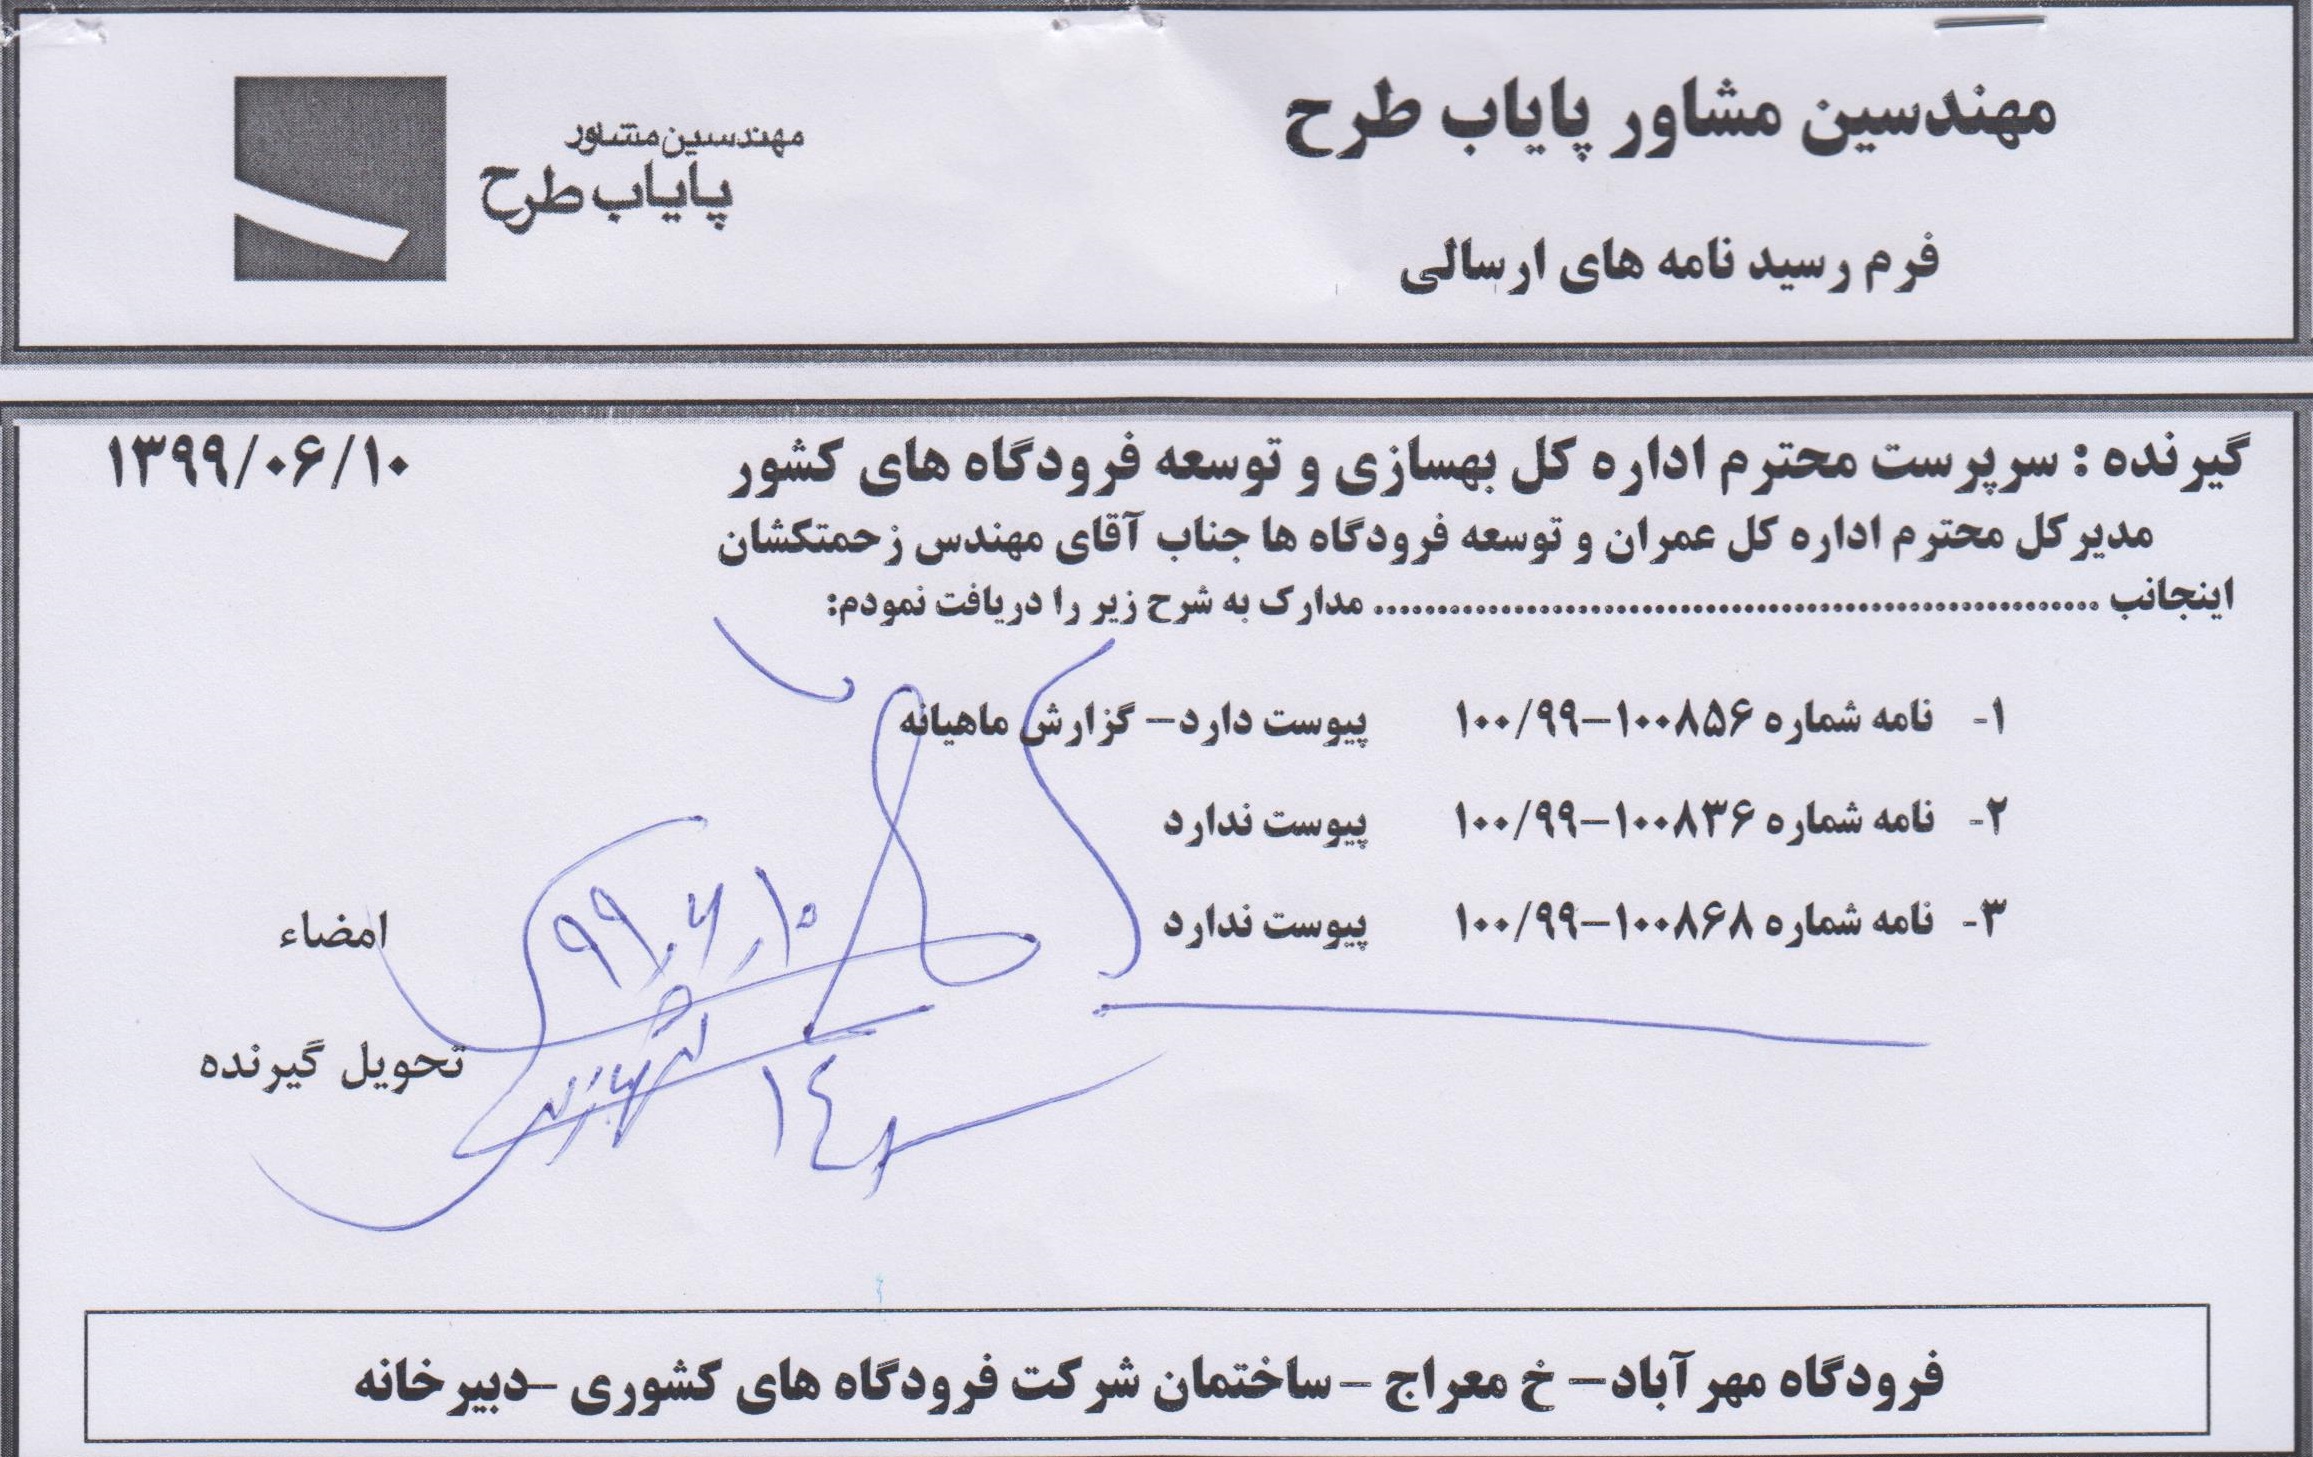 مهندسین مشاور پایاب طرح
مهندسین مشاور
پایاب طرح
فرم رسید نامه های ارسالی
گیرنده : سرپرست محترم اداره کل بهسازی و توسعه فرودگاه های کشور ۱۳۹۹/۰۶/۱۰
مدیرکل محترم اداره کل عمران و توسعه فرودگاه ها جناب آقای مهندس زحمتکشان
اینجانب ........................................................ مدارک به شرح زیر را دریافت نمودم:
۱- نامه شماره ۱۰۰۸۵۶–۱۰۰/۹۹ پیوست دارد– گزارش ماهیانه
۲- نامه شماره ۱۰۰۸۳۶–۱۰۰/۹۹ پیوست ندارد
۳- نامه شماره ۱۰۰۸۶۸–۱۰۰/۹۹ پیوست ندارد
۹۹،۶،۱۰
امضاء
تحویل گیرنده
فرودگاه مهرآباد– خ معراج –ساختمان شرکت فرودگاه های کشوری –دبیرخانه